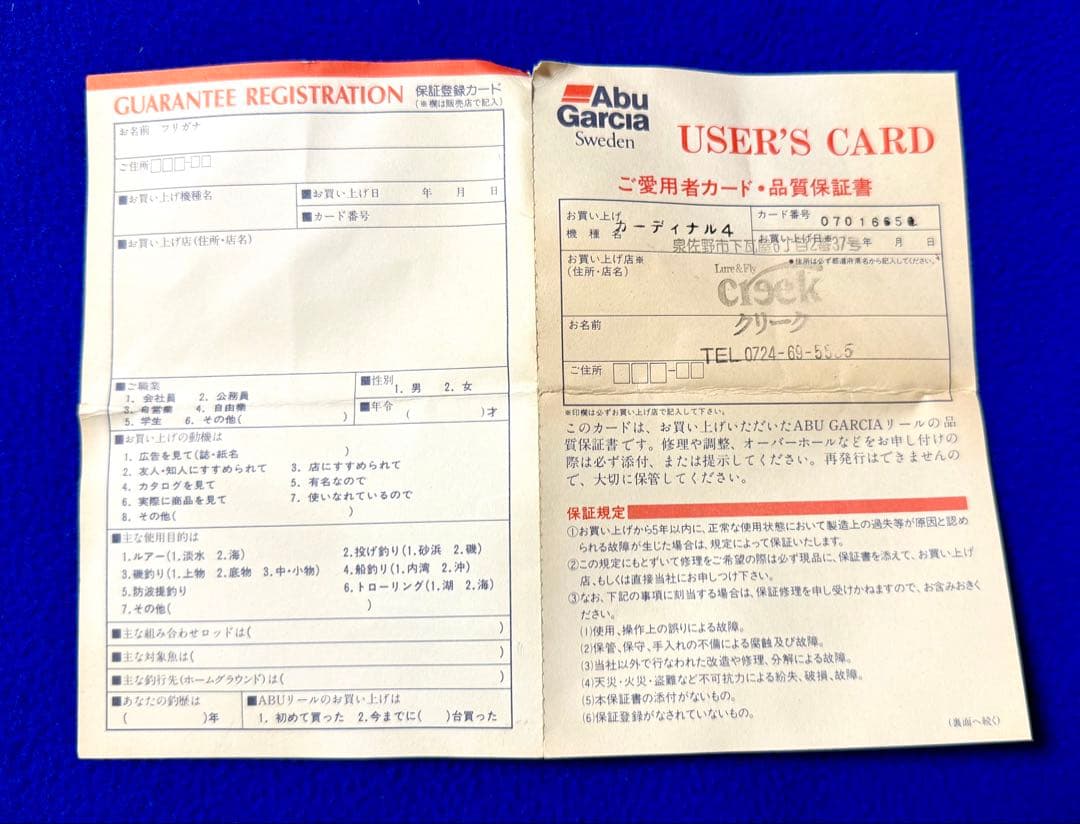 GUARANTEE REGISTRATION 保証登録カード
(※欄は販売店で記入)
お名前 フリガナ
ご住所
■お買い上げ機種名
■お買い上げ日 年 月 日
■カード番号
■お買い上げ店(住所・店名)
■ご職業
1. 会社員 2. 公務員
3. 自営業 4. 自由業
5. 学生 6. その他( )
■性別 1. 男 2. 女
■年令 ( )才
■お買い上げの動機は
1. 広告を見て(誌・紙名 )
2. 友人・知人にすすめられて 3. 店にすすめられて
4. カタログを見て 5. 有名なので
6. 実際に商品を見て 7. 使いなれているので
8. その他( )
■主な使用目的は
1.ルアー(1.淡水 2.海) 2.投げ釣り(1.砂浜 2.磯)
3.磯釣り(1.上物 2.底物 3.中・小物) 4.船釣り(1.内湾 2.沖)
5.防波提釣り 6.トローリング(1.湖 2.海)
7.その他( )
■主な組み合わせロッドは( )
■主な対象魚は( )
■主な釣行先(ホームグラウンド)は( )
■あなたの釣歴は
( )年
■ABUリールのお買い上げは
1. 初めて買った 2.今までに( )台買った
Abu
Garcia
Sweden
USER'S CARD
ご愛用者カード・品質保証書
お買い上げ
機種名 カーディナル4
カード番号
お買い上げ日※ 年 月 日
泉佐野市下瓦屋
お買い上げ店※
(住所・店名)
●住所は必ず都道府県名から記入してください。
Lure&Fly
creek
クリーク
お名前
TEL 0724-69-
ご住所
※印欄は必ずお買い上げ店で記入して下さい。
このカードは、お買い上げいただいたABU GARCIAリールの品
質保証書です。修理や調整、オーバーホールなどをお申し付けの
際は必ず添付、または提示してください。再発行はできませんの
で、大切に保管してください。
保証規定
①お買い上げから5年以内に、正常な使用状態において製造上の過失等が原因と認め
られる故障が生じた場合は、規定によって保証いたします。
②この規定にもとずいて修理をご希望の際は必ず現品に、保証書を添えて、お買い上げ
店、もしくは直接当社にお申しつけ下さい。
③なお、下記の事項に刻当する場合は、保証修理を申し受けかねますので、お含みおきく
ださい。
(1)使用、操作上の誤りによる故障。
(2)保管、保守、手入れの不備による腐触及び故障。
(3)当社以外で行なわれた改造や修理、分解による故障。
(4)天災・火災・盗難など不可抗力による紛失、破損、故障。
(5)本保証書の添付がないもの。
(6)保証登録がなされていないもの。
(裏面へ続く)